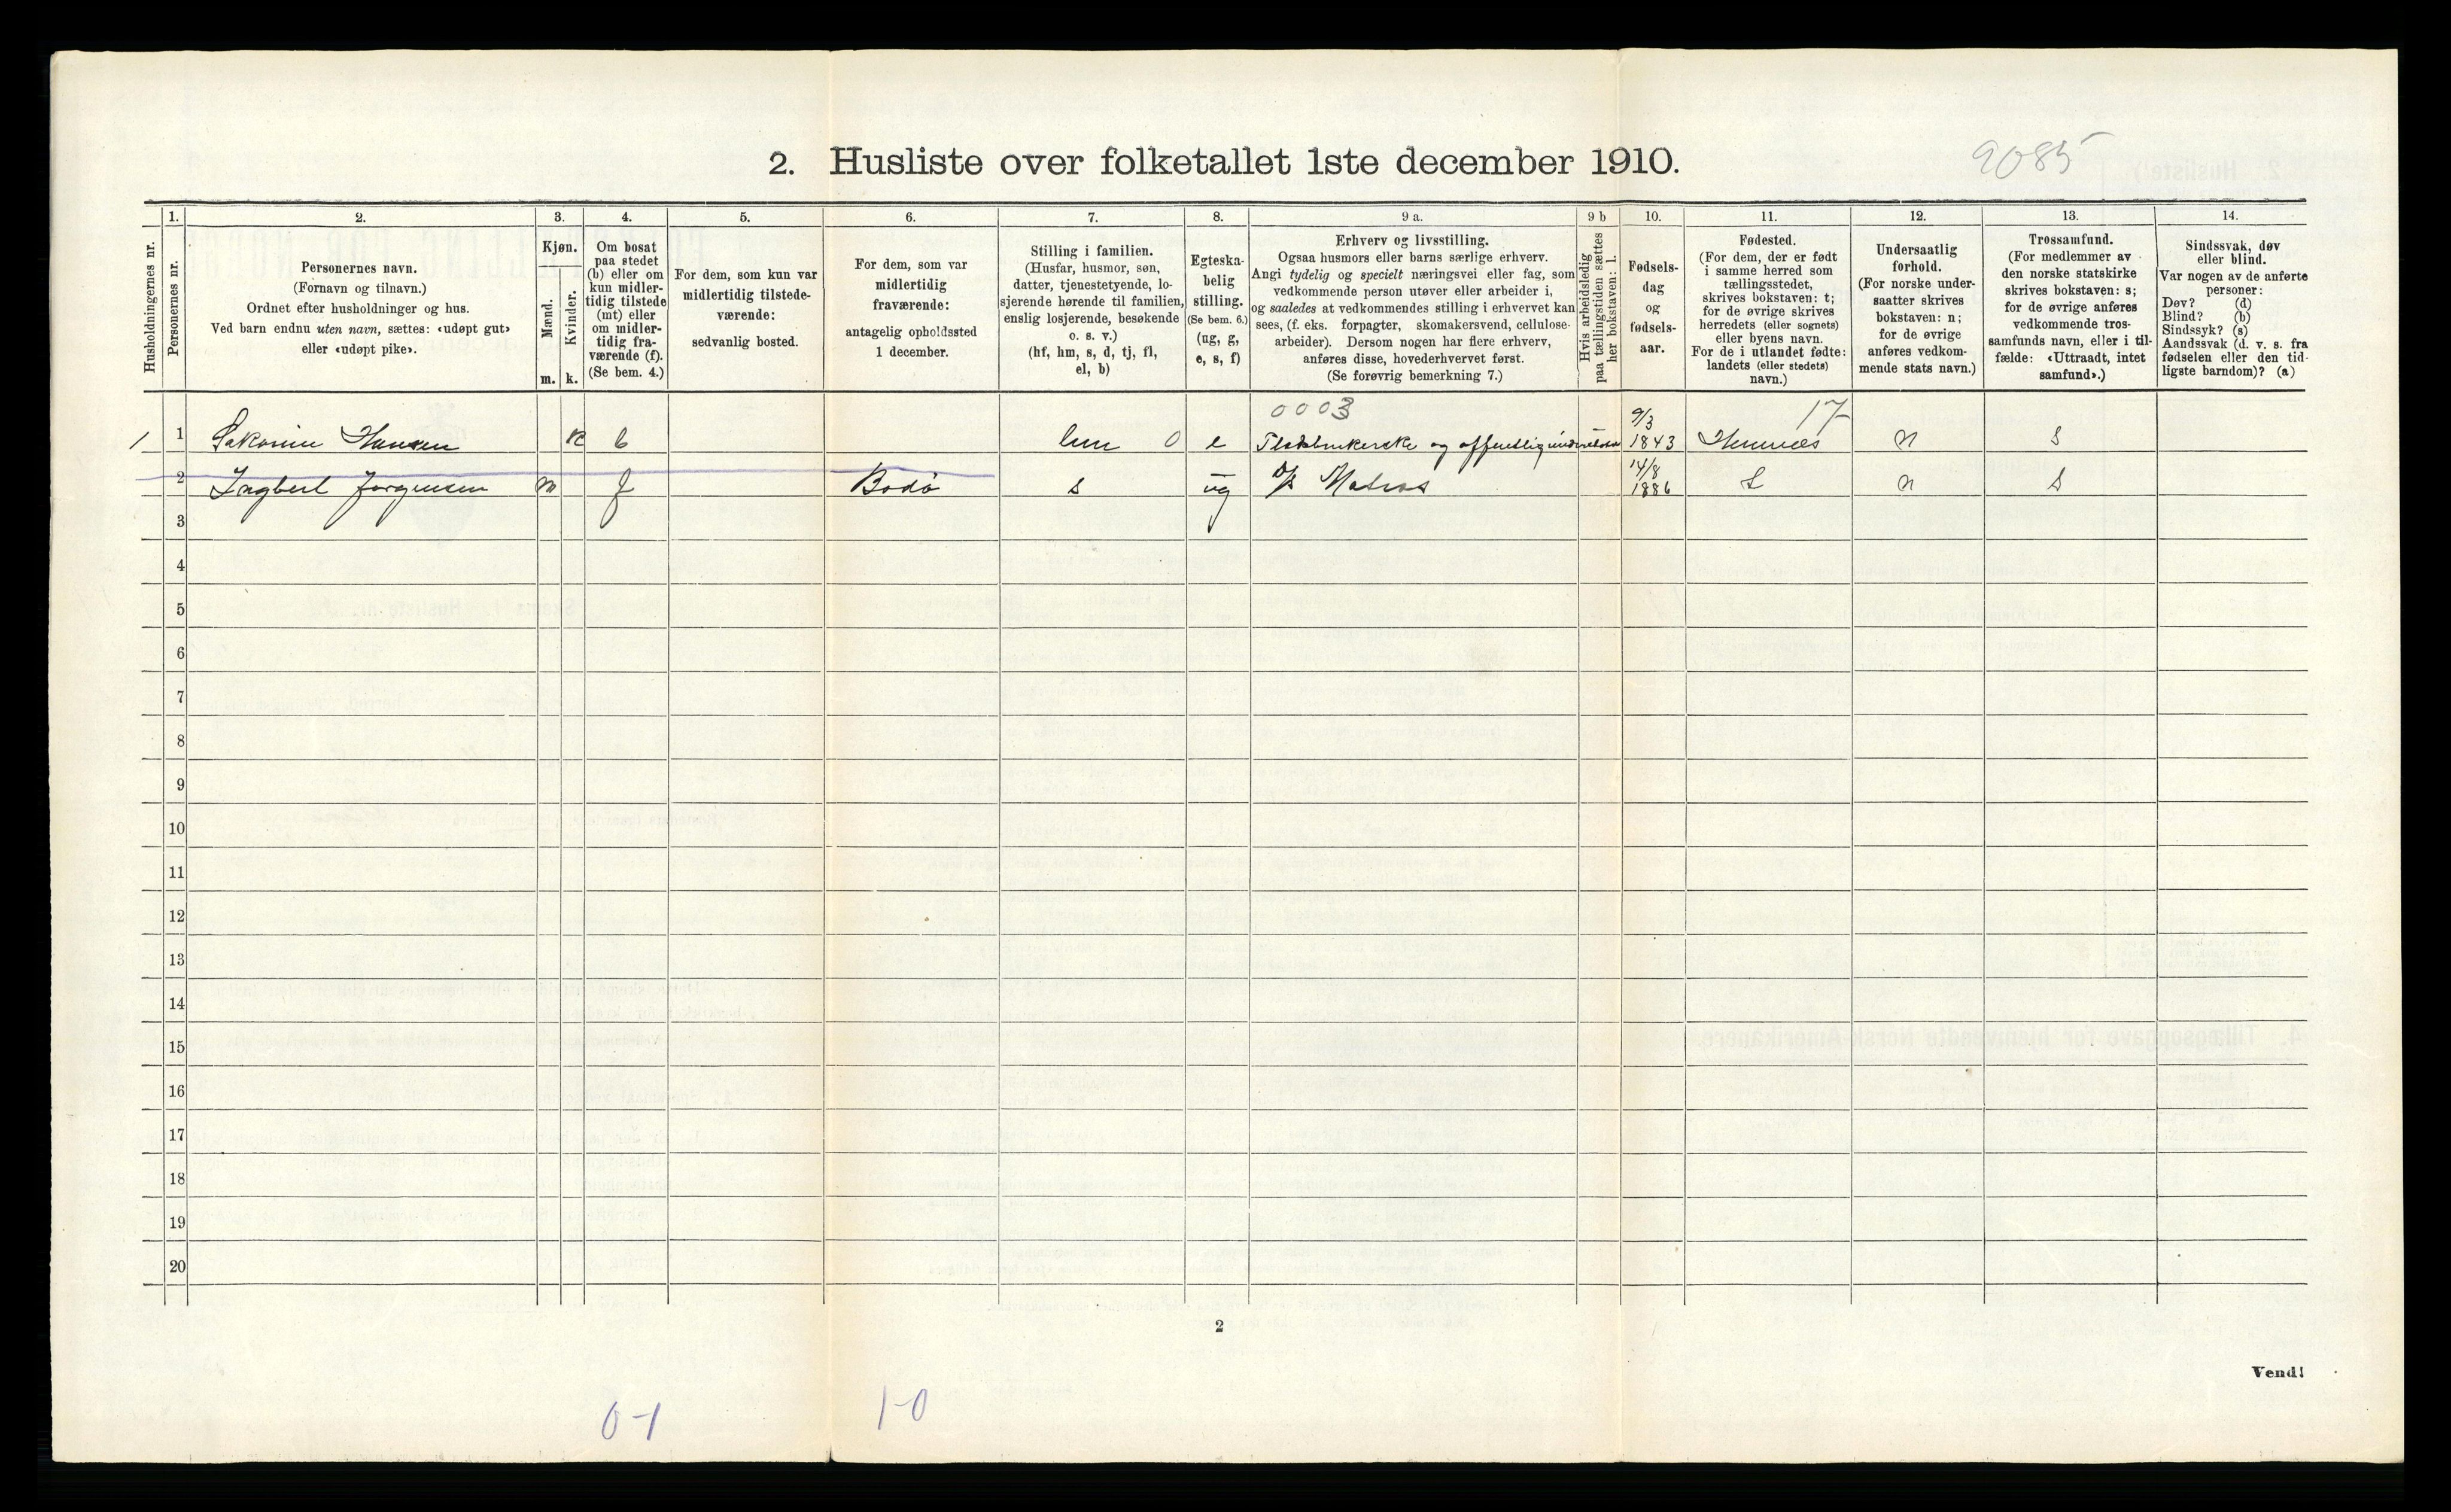 2. Husliste over folketallet 1ste december 1910.
9085
Husholdningernes nr.
1.
Personernes nr.
2.
Personernes navn.
(Fornavn og tilnavn.)
Ordnet efter husholdninger og hus.
Ved barn endnu uten navn, sættes: «udøpt gut»
eller «udøpt pike».
3.
Kjøn.
Mænd.
Kvinder.
m. k.
4.
Om bosat
paa stedet
(b) eller om
kun midler-
tidig tilstede
(mt) eller
om midler-
tidig fra-
værende (f).
(Se bem. 4.)
5.
For dem, som kun var
midlertidig tilstede-
værende:
sedvanlig bosted.
6.
For dem, som var
midlertidig
fraværende:
antagelig opholdssted
1 december.
7.
Stilling i familien.
(Husfar, husmor, søn,
datter, tjenestetyende, lo-
sjerende hørende til familien,
enslig losjerende, besøkende
o. s. v.)
(hf, hm, s, d, tj, fl,
el, b)
8.
Egteska-
belig
stilling.
(Se bem. 6.)
(ug, g,
e, s, f)
9 a.
Erhverv og livsstilling.
Ogsaa husmors eller barns særlige erhverv.
Angi tydelig og specielt næringsvei eller fag, som
vedkommende person utøver eller arbeider i,
og saaledes at vedkommendes stilling i erhvervet kan
sees, (f. eks. forpagter, skomakersvend, cellulose-
arbeider). Dersom nogen har flere erhverv,
anføres disse, hovederhvervet først.
(Se forøvrig bemerkning 7.)
9 b
Hvis arbeidsledig
paa tællingstiden sættes
her bokstaven: l.
10.
Fødsels-
dag
og
fødsels-
aar.
11.
Fødested.
(For dem, der er født
i samme herred som
tællingsstedet,
skrives bokstaven: t;
for de øvrige skrives
herredets (eller sognets)
eller byens navn.
For de i utlandet fødte:
landets (eller stedets)
navn.)
12.
Undersaatlig
forhold.
(For norske under-
saatter skrives
bokstaven: n;
for de øvrige
anføres vedkom-
mende stats navn.)
13.
Trossamfund.
(For medlemmer av
den norske statskirke
skrives bokstaven: s;
for de øvrige anføres
vedkommende tros-
samfunds navn, eller i til-
fælde: «Uttraadt, intet
samfund».)
14.
Sindssvak, døv
eller blind.
Var nogen av de anførte
personer:
Døv? (d)
Blind? (b)
Sindssyk? (s)
Aandssvak (d. v. s. fra
fødselen eller den tid-
ligste barndom)? (a)
0003 9/3 17
1 1 Hansen k b hm 0 e og 1843 n s
14/8
2 Ingbert Jørgensen m f Bodø s ug Matros 1886 n s
3
4
5
6
7
8
9
10
11
12
13
14
15
16
17
18
19
20
2
Vend!
0-1 1-0